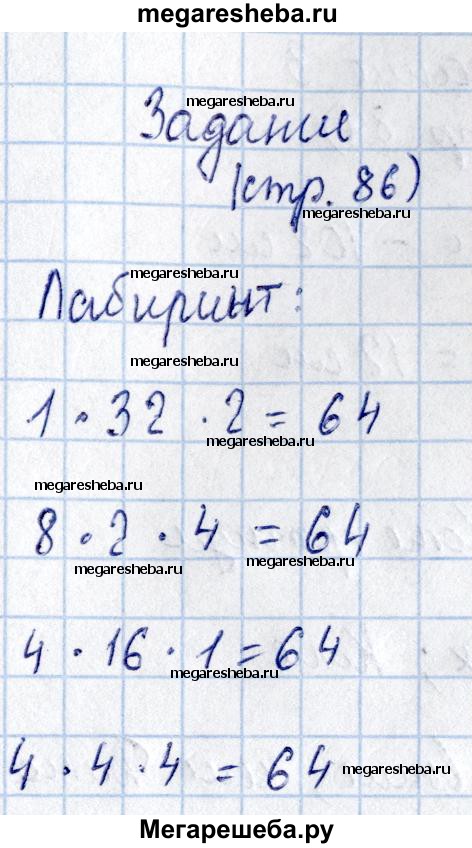 megaresheba.ru
megaresheba.ru
Задание
(стр. 86)
megaresheba.ru
megaresheba.ru
Лабиринт:
megaresheba.ru
1 · 32 · 2 = 64
megaresheba.ru
megaresheba.ru
8 · 2 · 4 = 64
megaresheba.ru
megaresheba.ru
4 · 16 · 1 = 64
megaresheba.ru
4 · 4 · 4 = 64
megaresheba.ru
Мегарешеба.ру